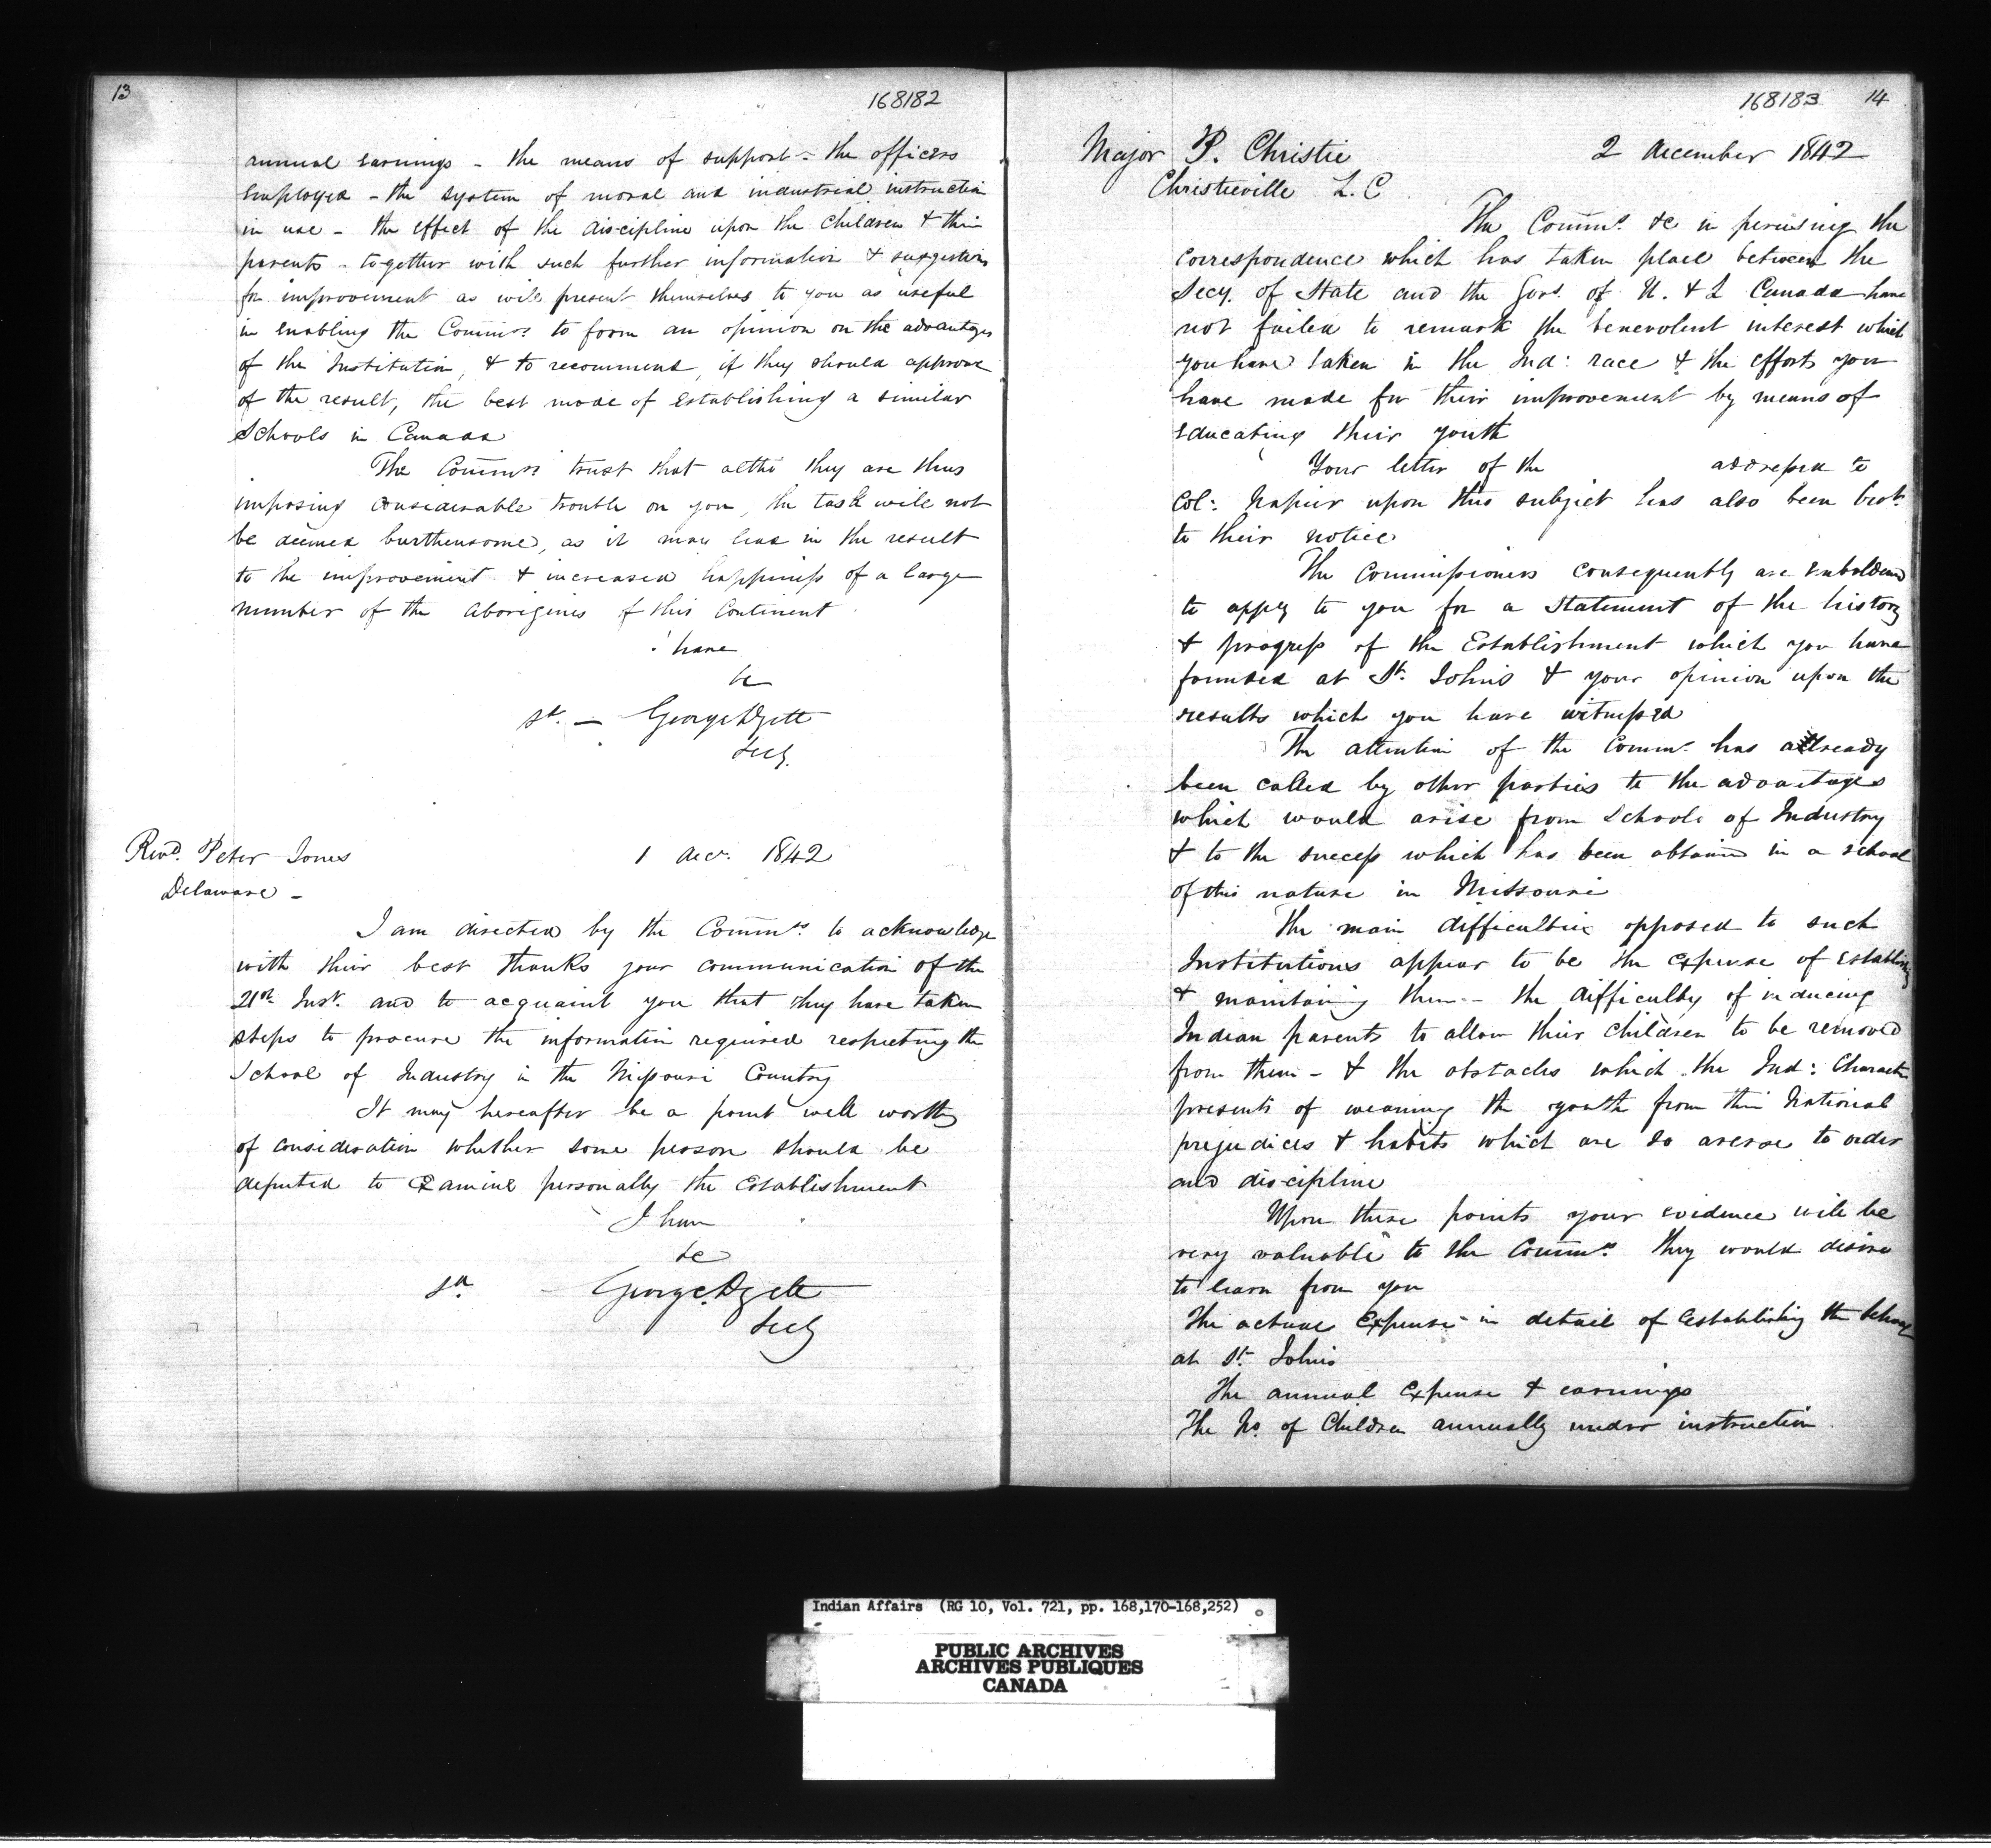 13
168182
annual earnings - the means of support - the officers
employed - the system of moral and industrial instruction
in use - the effect of the discipline upon the children & their
parents - together with such further information & suggestions
for improvement as will present themselves to you as useful
in enabling the Commrs to form an opinion on the advantages
of the Institution, & to recommend, if they should approve
of the result, the best mode of establishing a similar
Schools in Canada
The Commrs trust that altho they are thus
imposing considerable trouble on you, the task will not
be deemed burthensome, as it may lead in the result
to the improvement & increased happiness of a large
number of the Aborigines of this Continent
I have
&c
sd. - George
Secy.
Revd. Peter Jones
1 Decr. 1842
Delaware -
I am directed by the Commrs to acknowledge
with their best thanks your communication of the
21st Inst. and to acquaint you that they have taken
steps to procure the information required respecting the
School of Industry in the Missouri Country
It may hereafter be a point well worthy
of consideration whether some person should be
deputed to examine personally the Establishment
I have
&c
sd. George
Secy
168183 14
Major P. Christie
2 December 1842
Christieville L. C
The Commrs. &c in perusing the
correspondence which has taken place between the
Secy. of State and the Govs. of U. & L Canada have
not failed to remark the benevolent interest which
you have taken in the Ind: race & the efforts you
have made for their improvement by means of
educating their youth
Your letter of the addressed to
Col: Napier upon this subject has also been brot.
to their notice
The Commissioners consequently are emboldened
to apply to you for a Statement of the history
& progress of the Establishment which you have
founded at St. Johns & your opinion upon the
results which you have witnessed
The attention of the Commrs. has already
been called by other parties to the advantages
which would arise from Schools of Industry
& to the success which has been obtained in a school
of this nature in Missouri
The main difficulties opposed to such
Institutions appear to be the expense of establishing
& maintaining them - the difficulty of inducing
Indian parents to allow their children to be removed
from them - & the obstacles which the Ind: Character
presents of weaning the youth from their National
prejudices & habits which are so averse to order
and discipline
Upon these points your evidence will be
very valuable to the Commrs. They would desire
to learn from you
The actual expense in detail of establishing the School
at St. Johns
The annual expense & earnings
The No. of Children annually under instruction
Indian Affairs (RG 10, Vol. 721, pp. 168,170-168,252)
PUBLIC ARCHIVES
ARCHIVES PUBLIQUES
CANADA